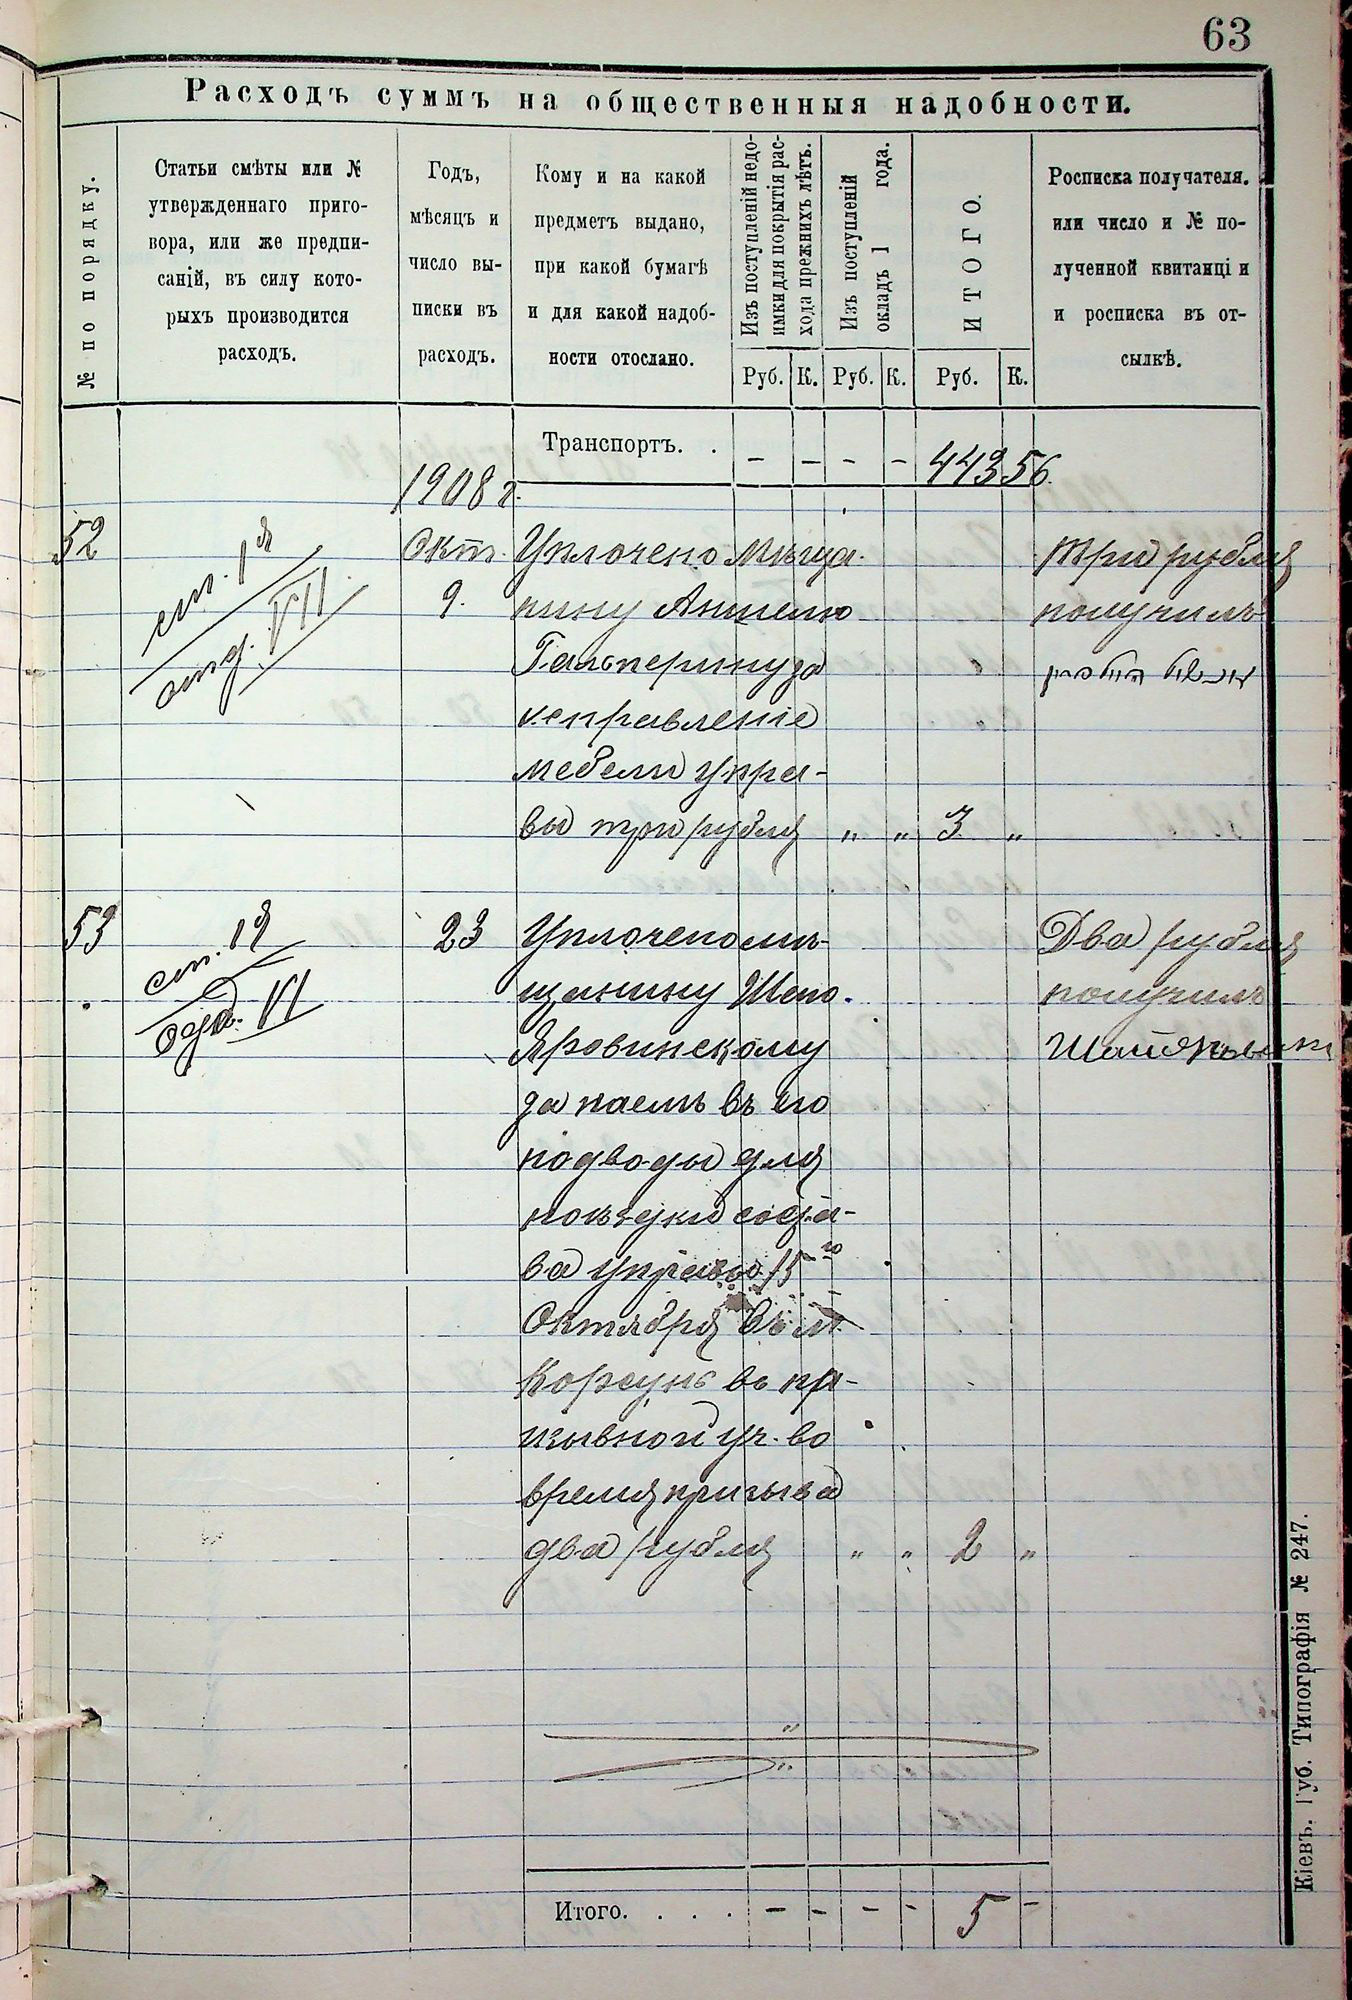 63
Расходъ суммъ на общественныя надобности.
№ по порядку.
Статьи смѣты или №
утвержденнаго приго-
вора, или же предпи-
саній, въ силу кото-
рыхъ производится
расходъ.
Годъ,
мѣсяцъ и
число вы-
писки въ
расходъ.
Кому и на какой
предметъ выдано,
при какой бумагѣ
и для какой надоб-
ности отослано.
Изъ поступленій недо-
имки для покрытія рас-
хода прежнихъ лѣтъ.
Изъ поступленій
окладъ 1 года.
ИТОГО.
Росписка получателя.
или число и № по-
лученной квитанціи
и росписка въ от-
сылкѣ.
Руб. К. Руб. К. Руб. К.
Транспортъ. . – – – – 443 56
1908 г.
52
ст. 1я
отд. VII
Окт.
9.
Уплочено мѣща-
нину Аншелю
Гальперину за
исправленіе
мебели упра-
вы три рубля „ „ 3 „
Три рубля
получилъ
53
ст. 1я
отд. VI
23
Уплочено мѣ-
щанину
Яровинскому
за наемъ въ его
подводы для
поѣздки соста-
ва управы 15го
Октября въ м.
Корсунь въ пр-
изывной уч. во
время призыва
два рубля „ „ 2 „
Два рубля
получилъ
Итого. . . . . – – – – 5 –
Кіевъ. Губ. Типографія № 247.